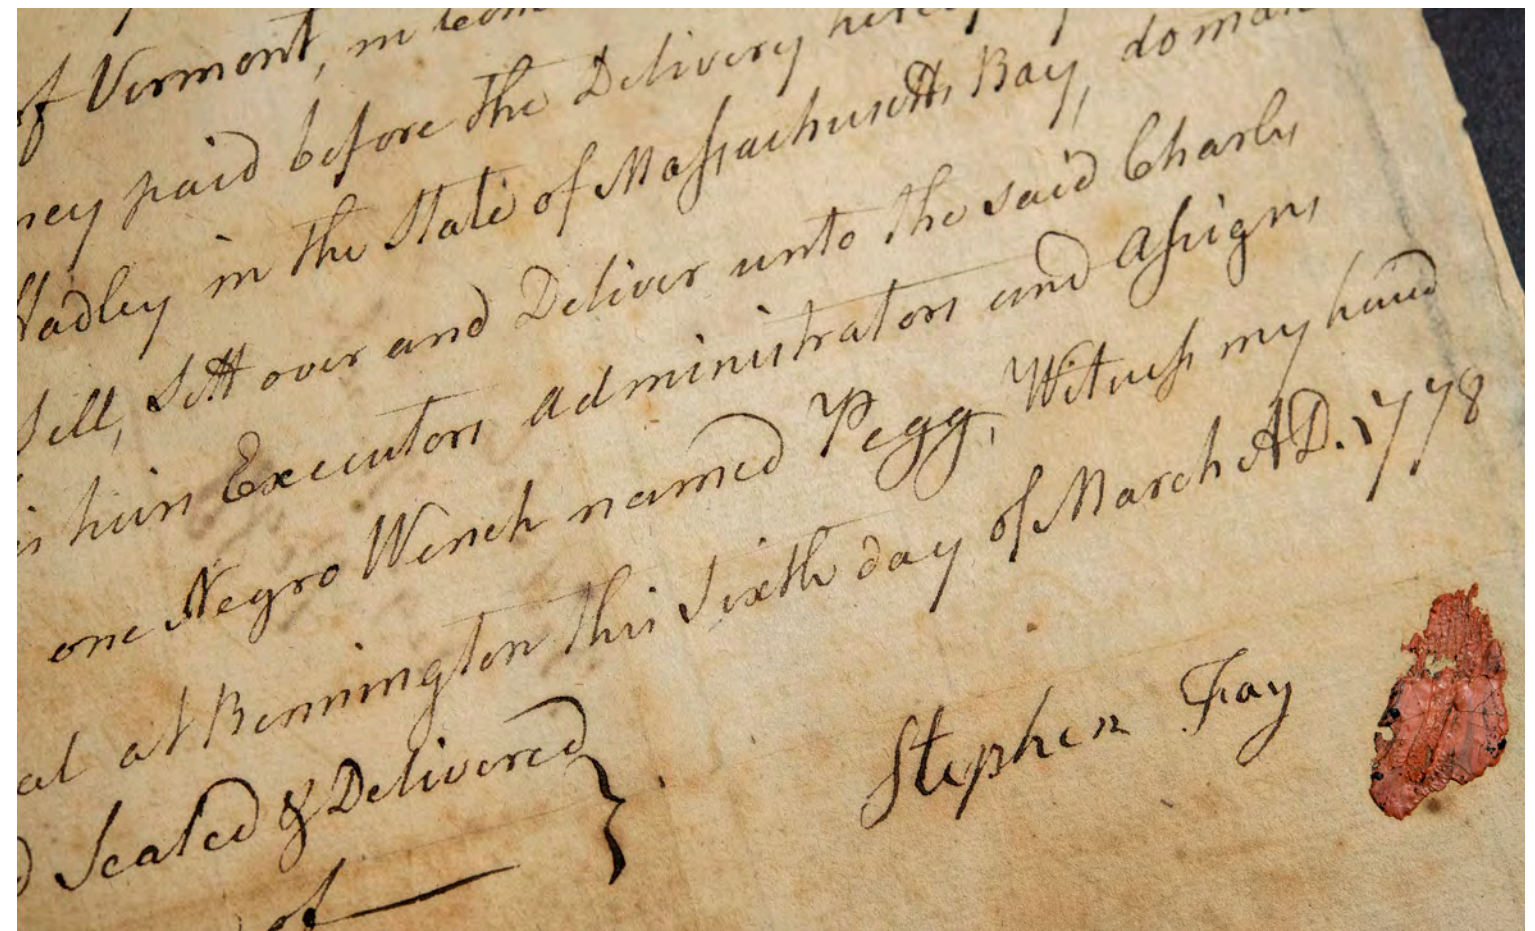 of Vermont, in
ney paid before the Delivery
Hadley in the State of Massachusetts Bay, do
Sell, Sett over and Deliver unto the said Charles
his heirs Executors Administrators and Assigns
one Negro Wench named Pegg, Witness my hand
al at Bennington this Sixth day of March AD. 1778
d Sealed & Delivered }
of
Stephen Fay